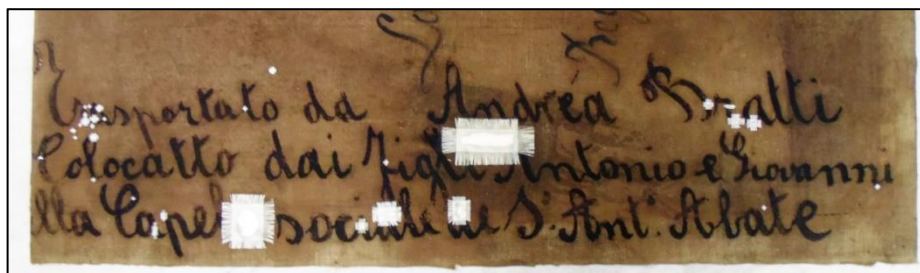 Trasportato da Andrea Bratti
Colocatto dai figli Antonio e Giovanni
lla Capel sociale de S. Ant. Abate